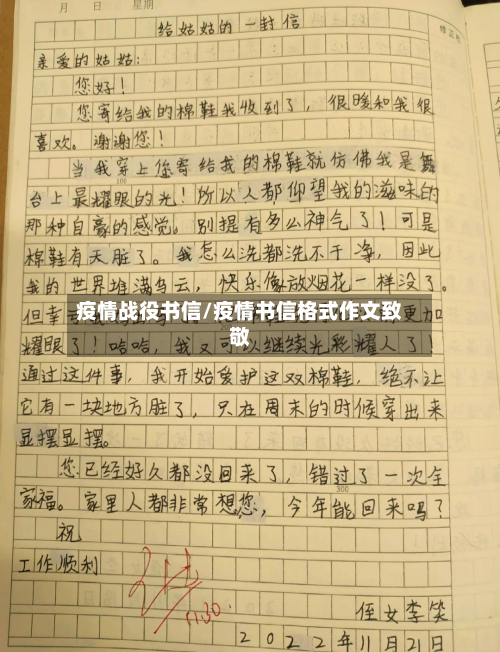 月 日 星期
给姑姑的一封信
亲爱的姑姑：
您好！
您寄给我的棉鞋我收到了，很暖和我很
喜欢。谢谢您！
当我穿上您寄给我的棉鞋就仿佛我是舞
100
台上最耀眼的光！所以人都仰望我的滋味的
那种自豪的感觉。别提有多么神气了！可是
棉鞋有天脏了。我怎么洗都洗不干净，因此
我的世界堆满乌云，快乐像放烟花一样没了。
但幸 更加
疫情战役书信/疫情书信格式作文致
敬
耀眼了！哈哈，我又可以继续光彩耀人了！
通过这件事，我开始爱护这双棉鞋，绝不让
它有一块地方脏了，只在周末的时候穿出来
显摆显摆。
您已经好久都没回来了，错过了一次全
300
家福。家里人都非常想您，今年能回来吗？
祝
工作顺利
11.30.
侄女李笑
2022年11月21日